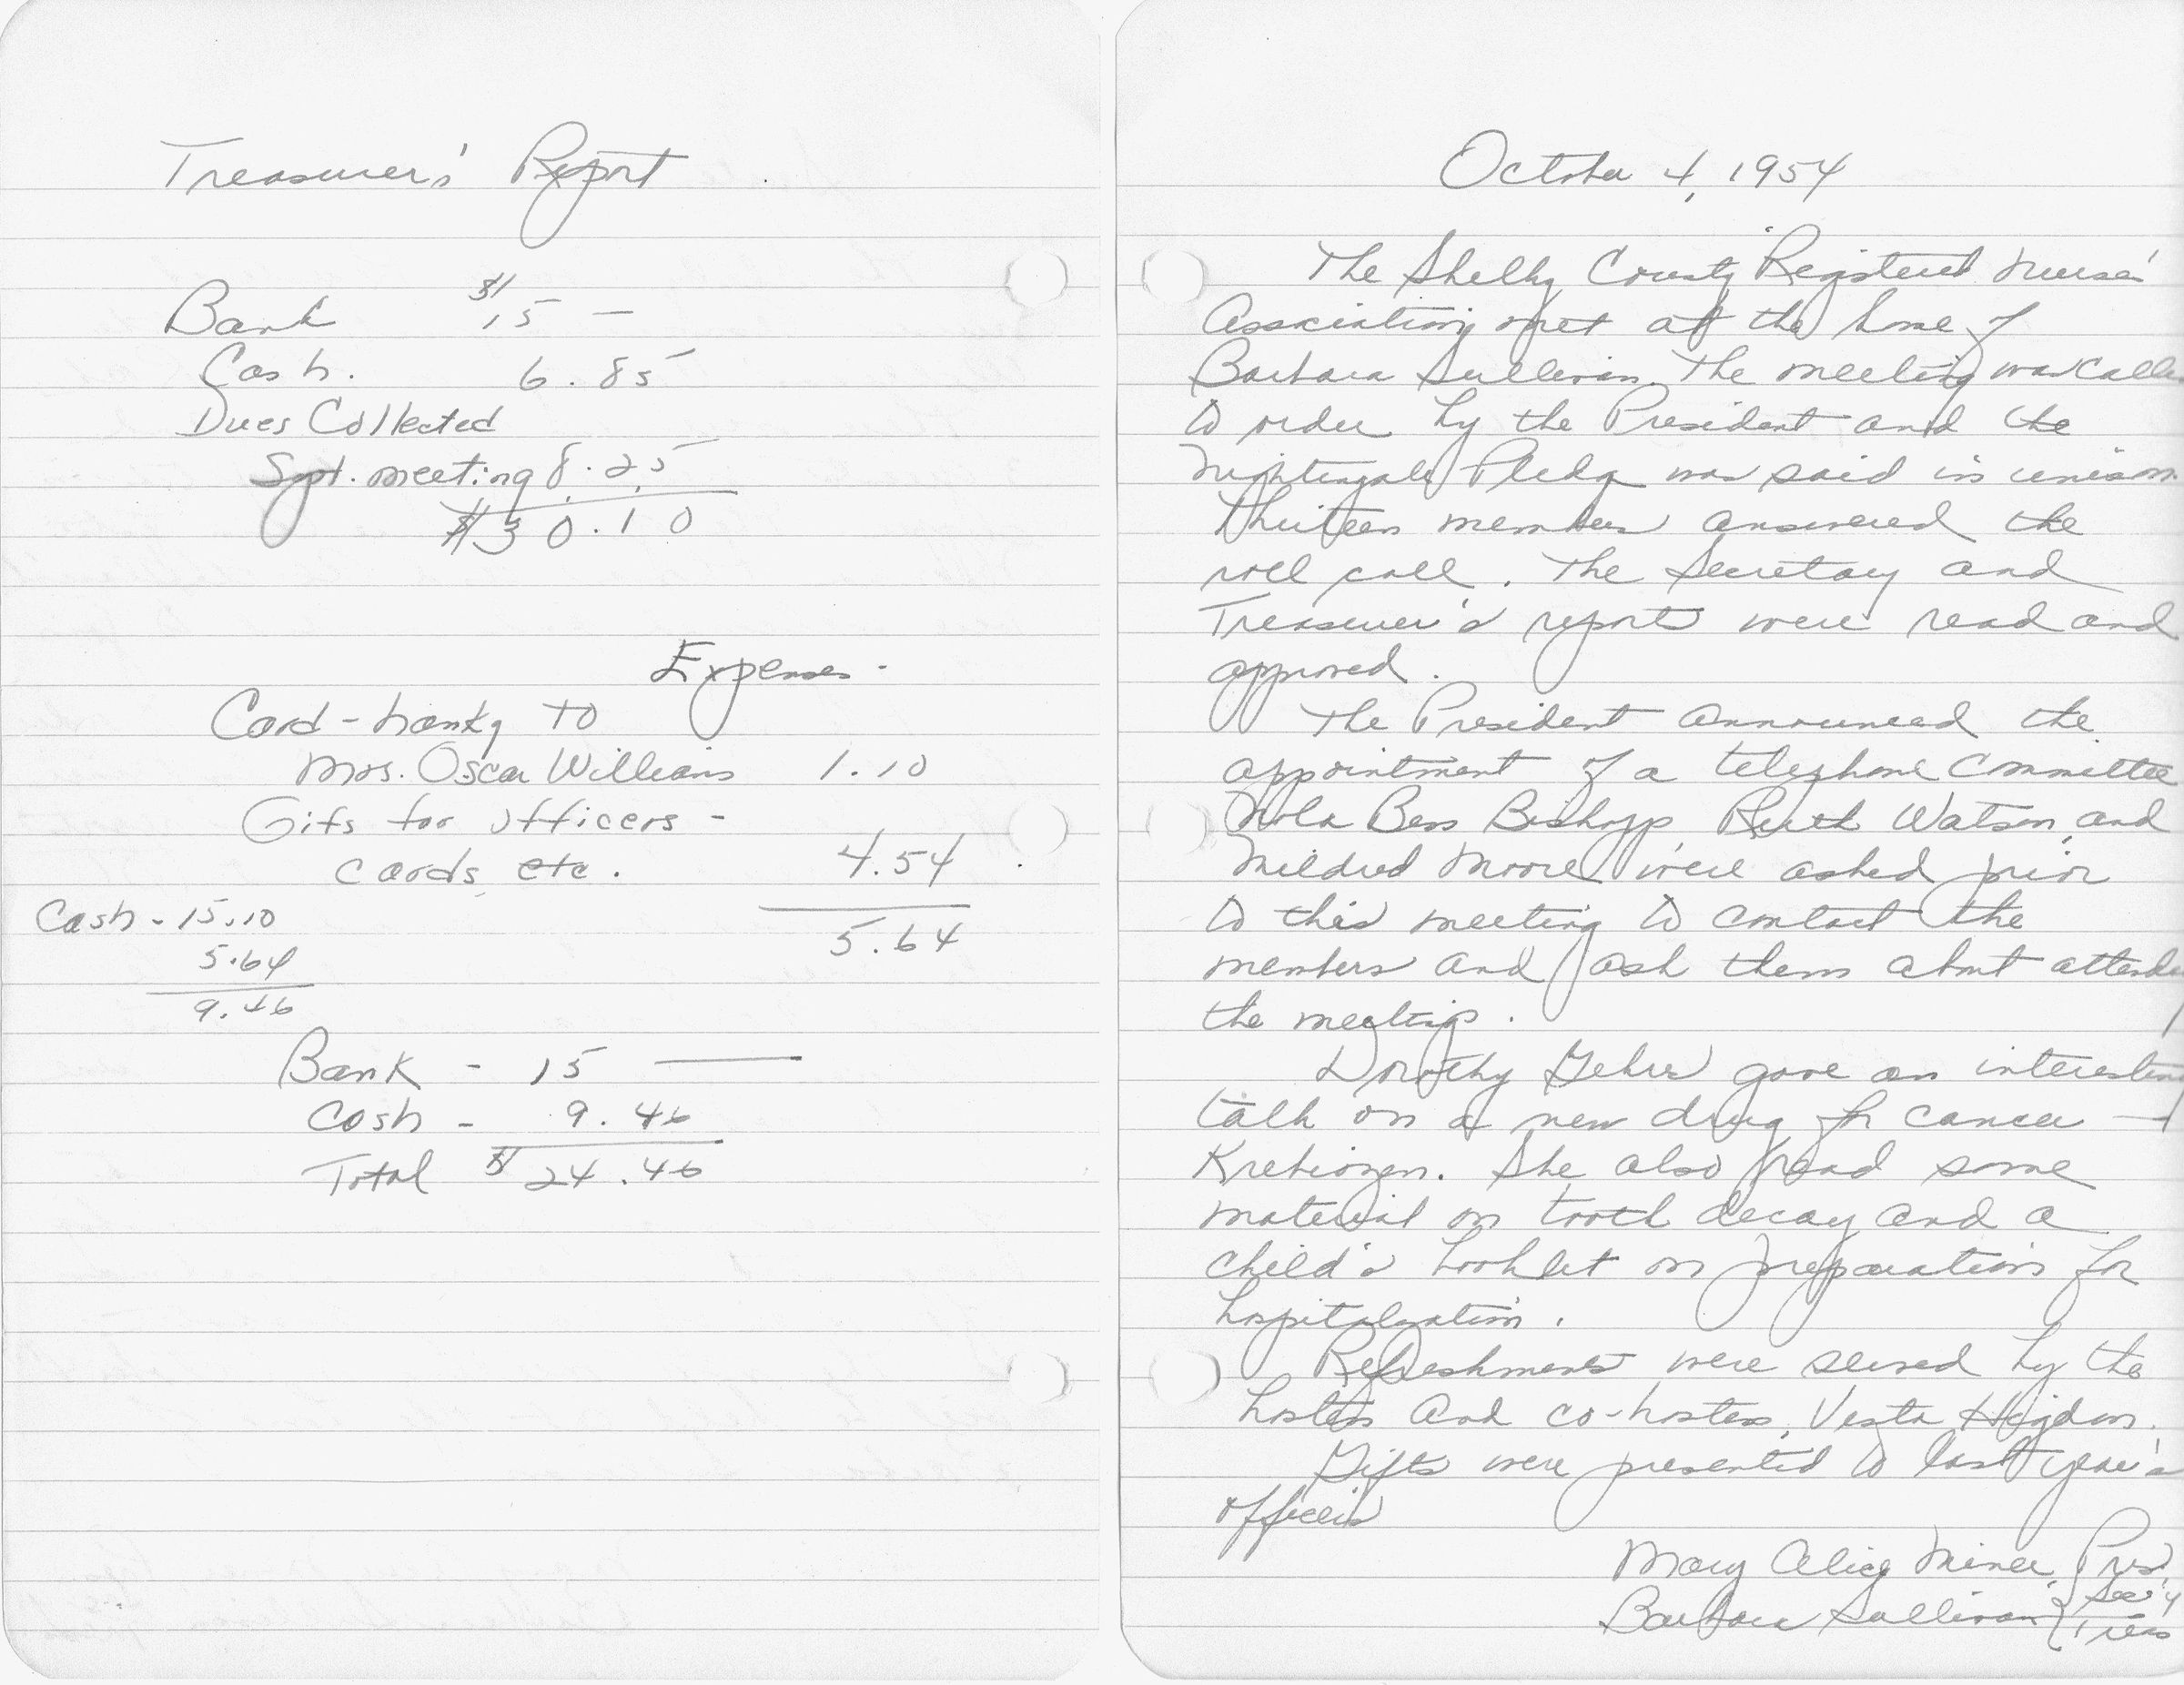 Treasurer's Report
Bank $15 —
Cash. 6.85
Dues Collected
Sept. meeting 8.25
$30.10
Expenses -
Card - hanky to
Mrs. Oscar Williams 1.10
Gifs for officers -
cards, etc. 4.54
Cash - 15.10
5.64
5.64
9.46
Bank - 15 —
Cash - 9.46
Total $24.46
October 4, 1954
The Shelby County Registered Nurses'
Association met at the home of
Barbara Sullivan. The meeting was calle
to order by the President and the
Nightingale Pledge was said in unison.
Thirteen members answered the
roll call. The Secretary and
Treasurer's reports were read and
approved.
The President announced the
appointment of a telephone committee
Nola Bess Bishopp, Ruth Watson, and
Mildred Moore were asked prior
to this meeting to contact the
members and ask them about attendi
the meetings.
Dorothy Gehrs gave an interestin
talk on a new drug for cancer —
Krebiozen. She also read some
material on tooth decay and a
child's booklet on preparation for
hospitalization.
Refreshments were served by the
hostess and co-hostess, Vesta Higdon.
Gifts were presented to last year's
officers
Mary Alice Miner, Pres.
Barbara Sullivan { Sec'y
Treas